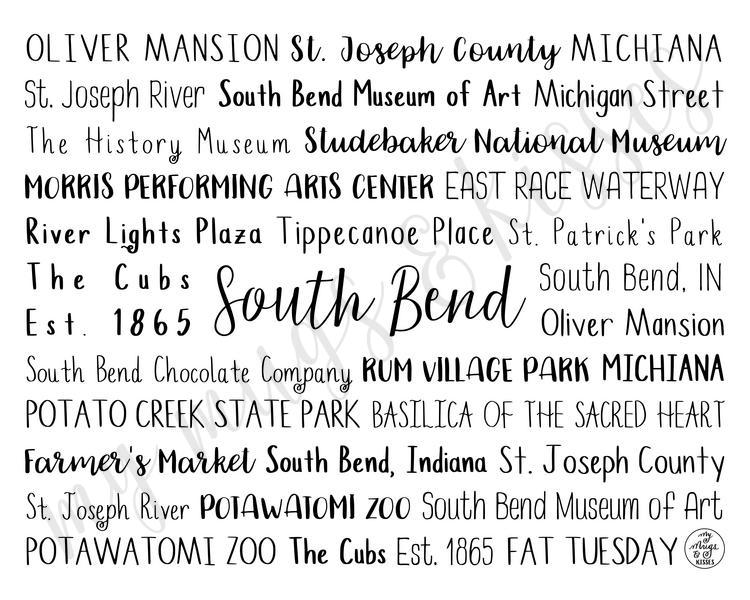 OLIVER MANSION St. Joseph County MICHIANA
St. Joseph River South Bend Museum of Art Michigan Street
The History Museum Studebaker National Museum
MORRIS PERFORMING ARTS CENTER EAST RACE WATERWAY
River Lights Plaza Tippecanoe Place St. Patrick's Park
The Cubs
Est. 1865
South Bend
South Bend, IN
Oliver Mansion
South Bend Chocolate Company RUM VILLAGE PARK MICHIANA
POTATO CREEK STATE PARK BASILICA OF THE SACRED HEART
Farmer's Market South Bend, Indiana St. Joseph County
St. Joseph River POTAWATOMI ZOO South Bend Museum of Art
POTAWATOMI ZOO The Cubs Est. 1865 FAT TUESDAY
my
Mugs
&
KISSES
my mugs & kisses